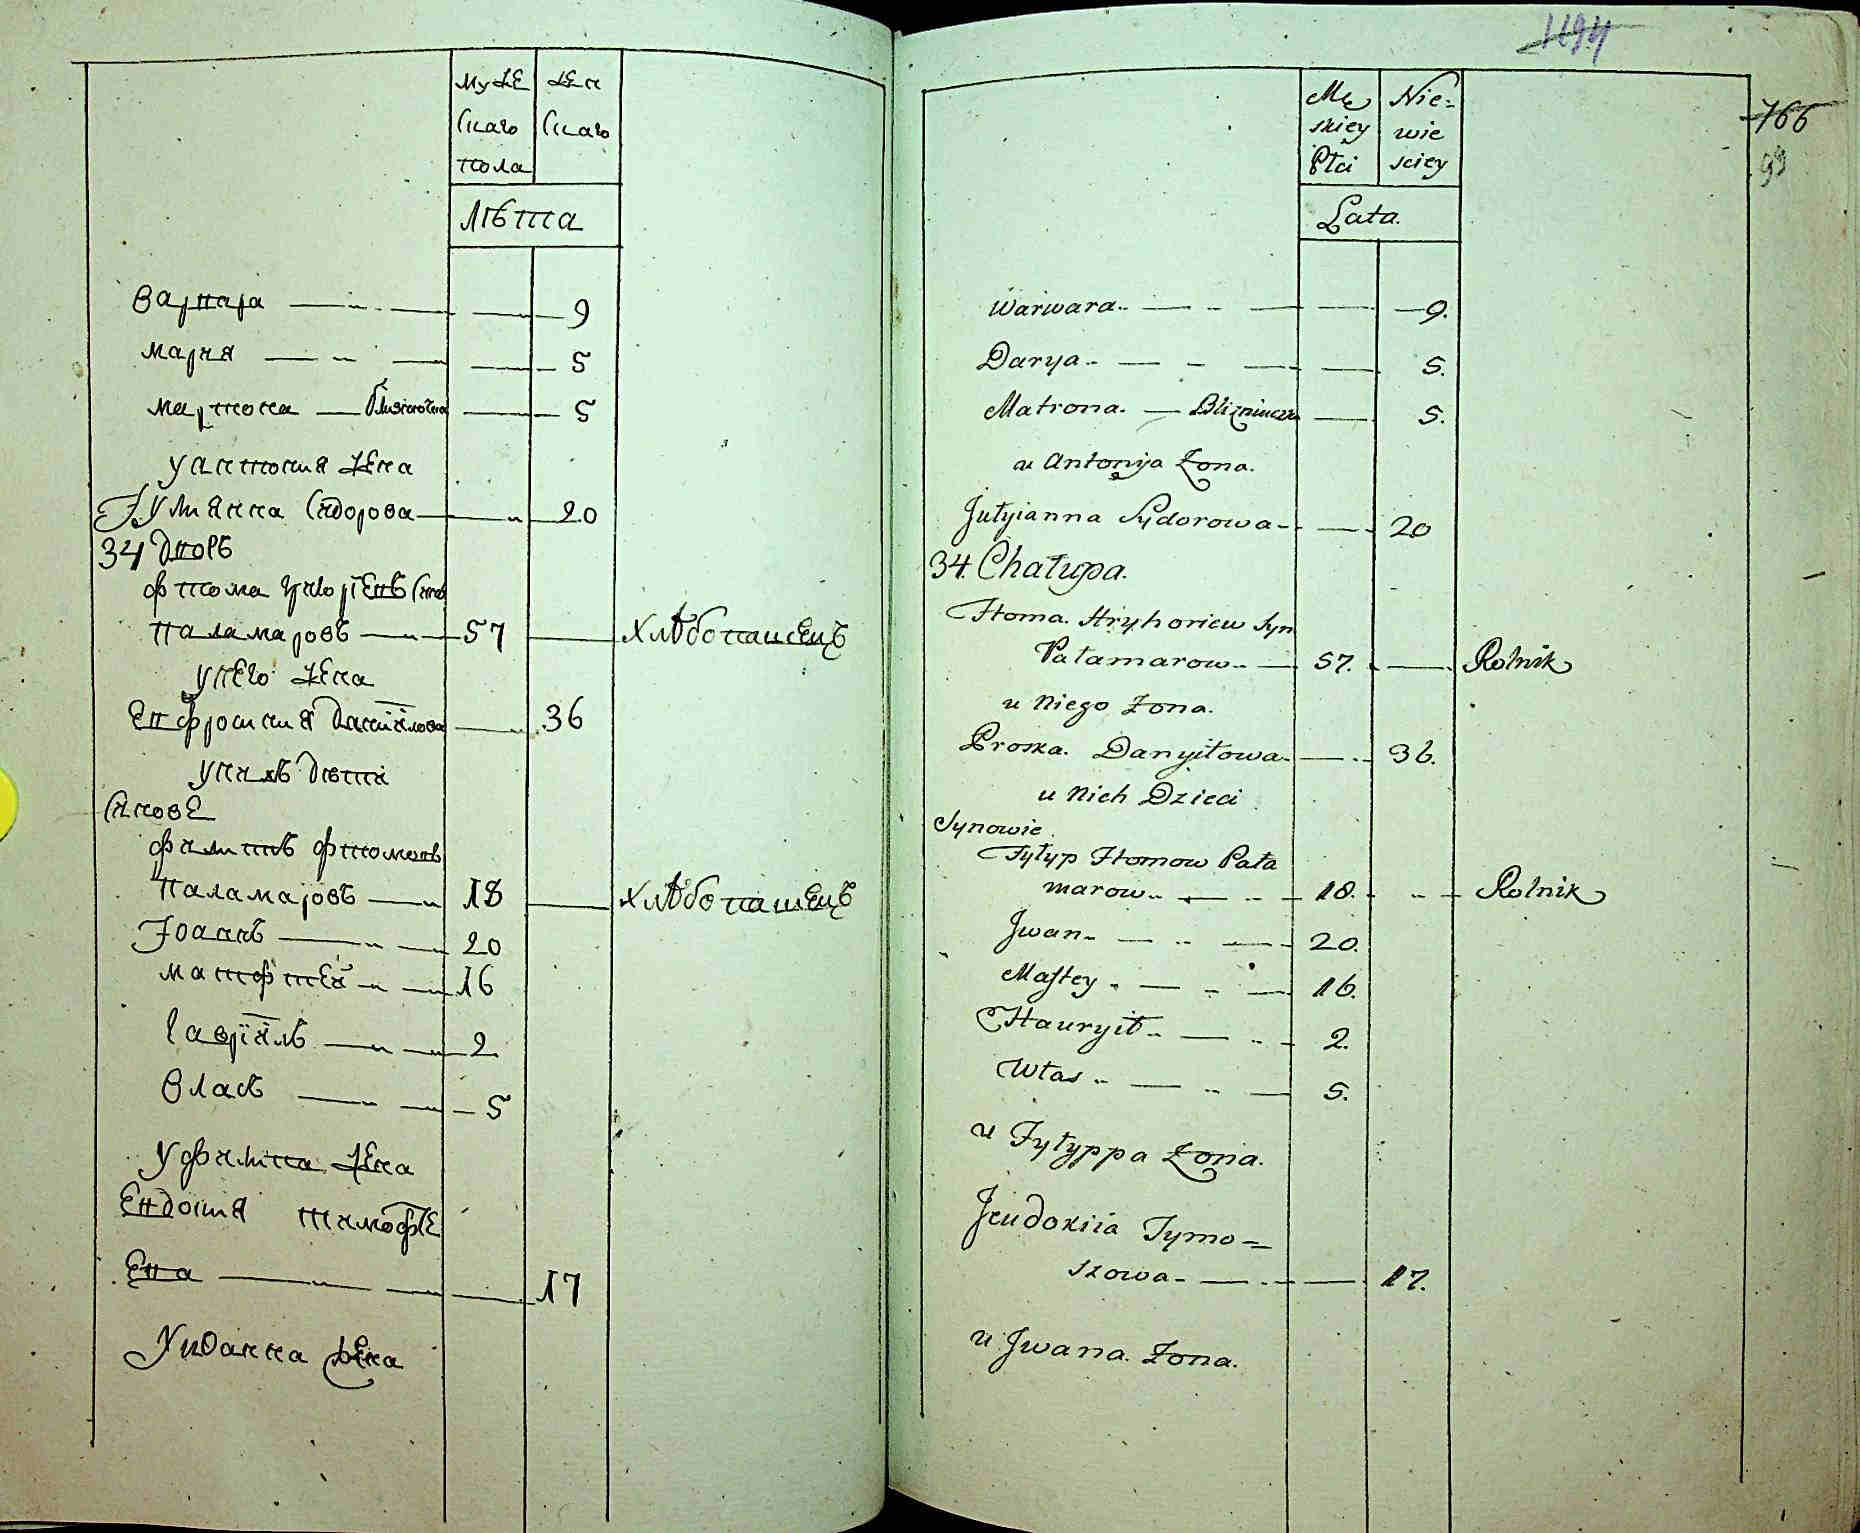 муже жен
скаго скаго
пола
лѣта
Варвара 9
Мария 5
Матрона близнючка 5
у Антония жена
Іулиянна Сидорова 20
34 дворъ
Фтома Григориевъ синъ
Паламаровъ 57 хлѣбопашецъ
у него жена
Евфросиния Даниилова 36
у нихъ дѣти
синове
Филипъ Фтомовъ
Паламаровъ 18 хлѣбопашецъ
Іоаннъ 20
Матфтей 16
Гавріилъ 2
Власъ 5
у Филиппа жена
Евдокия Тимофѣе
ева 17
у Иванна жена
1194
766
99
Mę Nie=
skiey wie
Płci sciey
Lata.
Warwara. 9.
Darya 5.
Matrona. Blizniucza 5.
u Antonija Zona.
Jułyianna Sydorowa 20
34. Chałupa.
Htoma. Hryhoriew Syn
Pałamarow 57. Rolnik
u Niego Zona.
Proska. Danyiłowa 36.
u Nich Dzieci
Synowie
Fyłyp Htomow Pała
marow 18. Rolnik
Jwan 20.
Maftey 16.
Hauryił 2.
Włas 5.
u Fyłyppa Zona.
Jeudokiia Tymo=
szowa 17.
u Jwana. Zona.